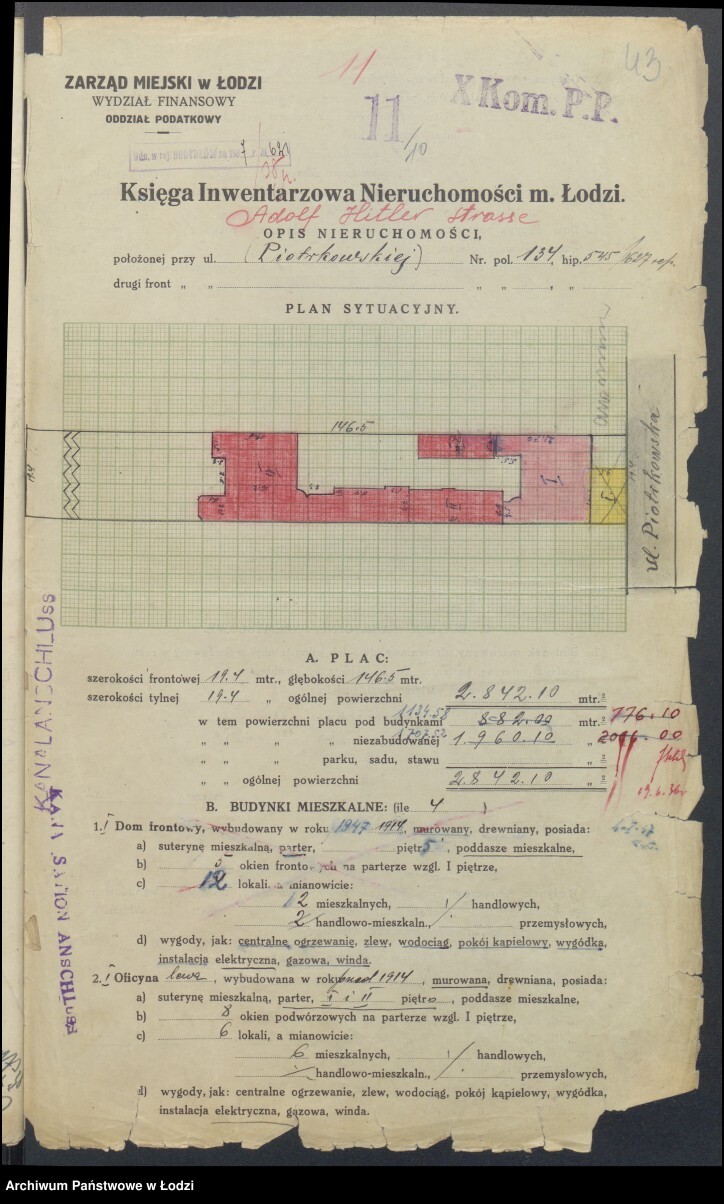 43
11
X Kom. P.P.
ZARZĄD MIEJSKI w ŁODZI
WYDZIAŁ FINANSOWY
ODDZIAŁ PODATKOWY
11/10
Księga Inwentarzowa Nieruchomości m. Łodzi.
Adolf Hitler Strasse
OPIS NIERUCHOMOŚCI,
położonej przy ul. (Piotrkowskiej) Nr. pol. 134, hip. 545
drugi front „ „ „ „ , „
PLAN SYTUACYJNY.
146.5
19.4
I
II
ul. Piotrkowska
KANALANSCHLUSS
A. PLAC:
szerokości frontowej 19.4 mtr., głębokości 146.5 mtr.
szerokości tylnej 19.4 „ ogólnej powierzchni 2.842.10 mtr.²
1134.58
w tem powierzchni placu pod budynkami 882.00 mtr.² 776.10
1707.52
„ „ „ „ niezabudowanej 1.960.10 „ 2066.00
„ „ „ parku, sadu, stawu „
„ „ ogólnej powierzchni 2842.10 „
19.6.36
B. BUDYNKI MIESZKALNE: (ile 4 )
1. Dom frontowy, wybudowany w roku 1947 1914, murowany, drewniany, posiada:
a) suterynę mieszkalną, parter, piętr 5, poddasze mieszkalne,
b) 5 okien frontowych na parterze wzgl. I piętrze,
c) 12 lokali, a mianowicie:
12 mieszkalnych, handlowych,
2 handlowo-mieszkaln., przemysłowych,
d) wygody, jak: centralne ogrzewanie, zlew, wodociąg, pokój kąpielowy, wygódka,
instalacja elektryczna, gazowa, winda.
2. Oficyna lewa, wybudowana w roku 1914, murowana, drewniana, posiada:
a) suterynę mieszkalną, parter, I i II piętro, poddasze mieszkalne,
b) 8 okien podwórzowych na parterze wzgl. I piętrze,
c) 6 lokali, a mianowicie:
6 mieszkalnych, handlowych,
handlowo-mieszkaln., przemysłowych,
d) wygody, jak: centralne ogrzewanie, zlew, wodociąg, pokój kąpielowy, wygódka,
instalacja elektryczna, gazowa, winda.
Archiwum Państwowe w Łodzi